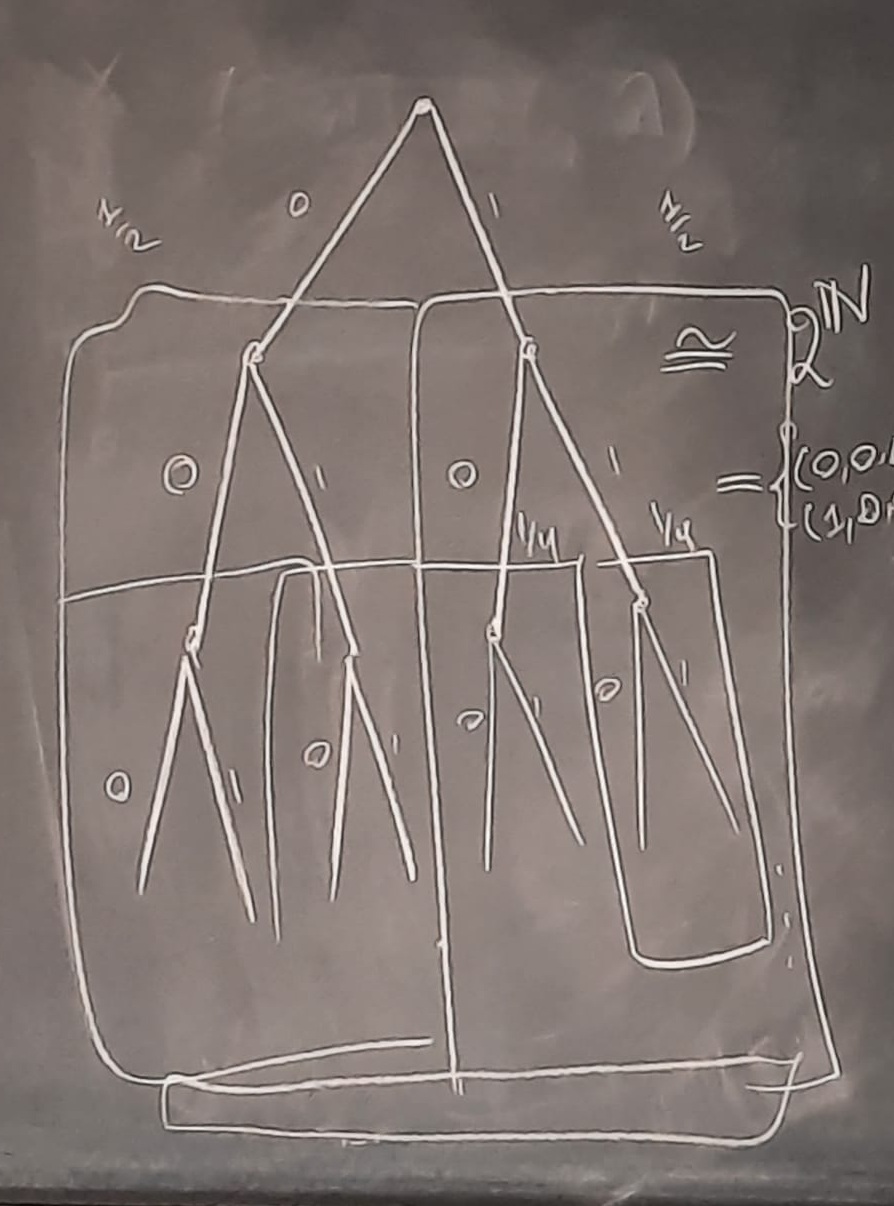 0 1
1/2 1/2
≅ 2^ℕ
0 1 0 1
= {(0,0,
(1,0,
1/4 1/4
0 1 0 1 0 1 0 1